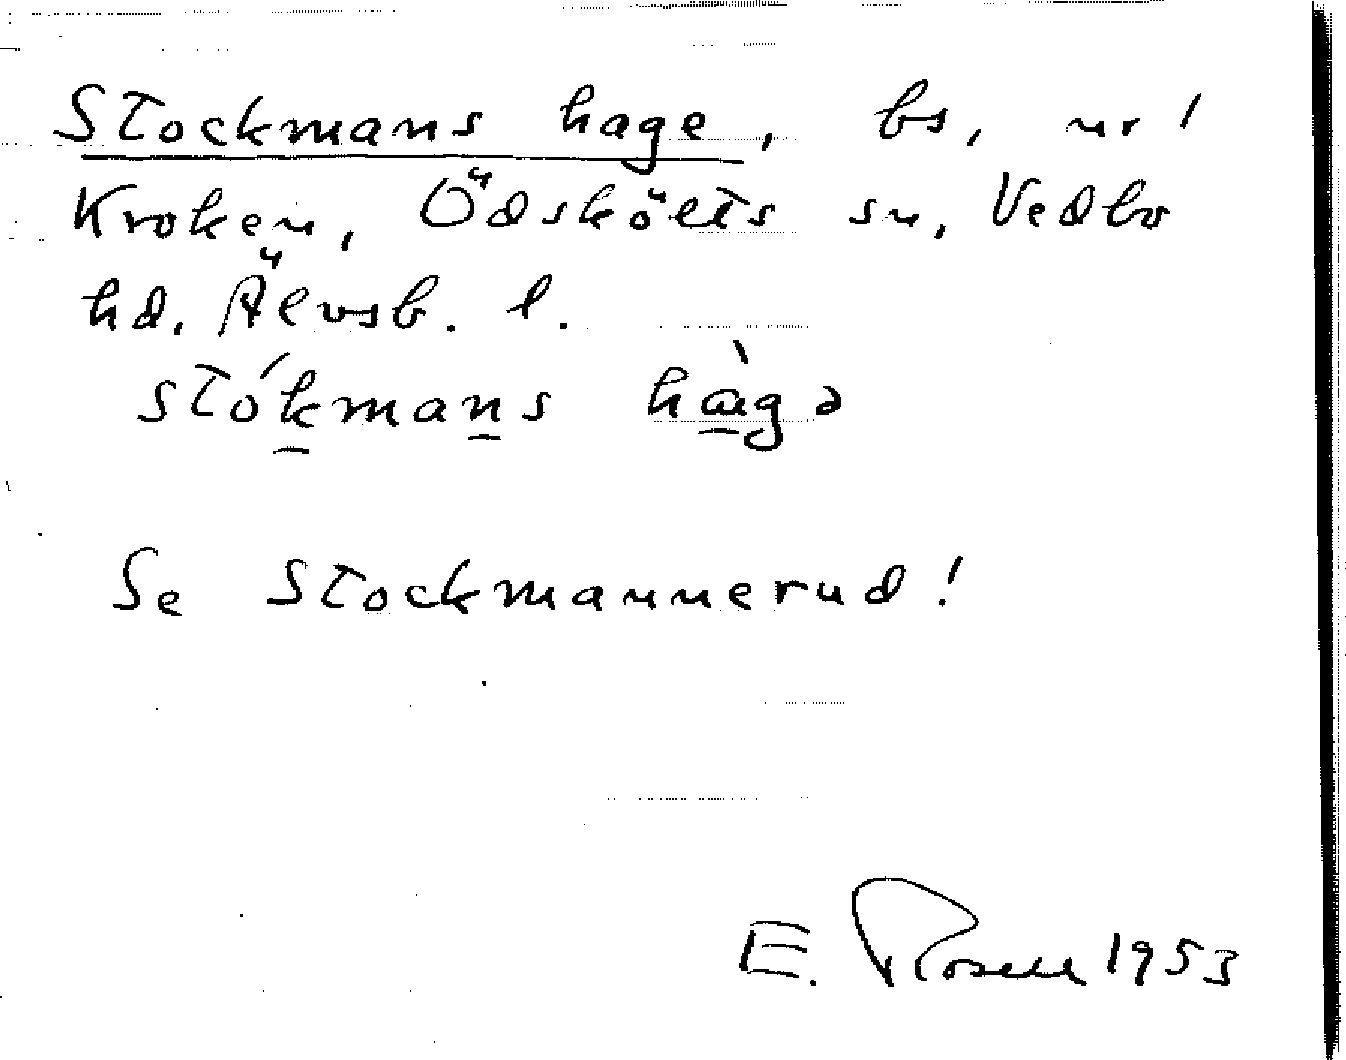 Stockmans hage, bs, nr 1
Kroken, Ödskölts sn, Vedbo
hd. Älvsb. l.
stókmans hàgə
Se Stockmannerud!
E. Rosell 1953